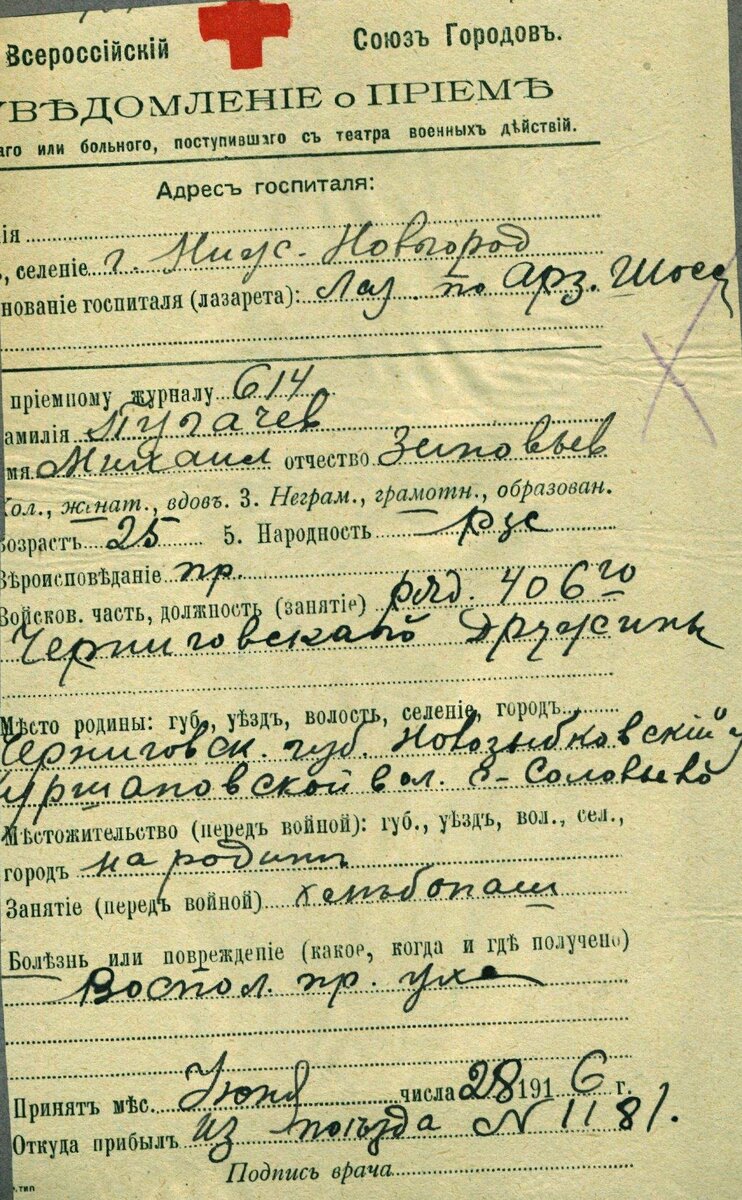 Всероссійскій Союзъ Городовъ.
УВѢДОМЛЕНІЕ о ПРІЕМѢ
аго или больного, поступившаго съ театра военныхъ дѣйствій.
Адресъ госпиталя:
нія
, селеніе г. Ниж. Новгород
нованіе госпиталя (лазарета): Лаз. по Арз. Шоссе
пріемному журналу 614
амилія Пугачев
мя Михаил отчество Зиновьев
Хол., женат., вдов. 3. Неграм., грамотн., образован.
Возрастъ 25 5. Народность рус
Вѣроисповѣданіе пр.
Войсков. часть, должность (занятіе) ряд. 406го
Черниговской Дружины
Мѣсто родины: губ., уѣздъ, волость, селеніе, городъ
Черниговск. губ. Новозыбковскій у
вол. с. Соловьево
Мѣстожительство (передъ войной): губ., уѣздъ, вол., сел.,
городъ на родинѣ
Занятіе (передъ войной) хлѣбопаш
Болѣзнь или поврежденіе (какое, когда и гдѣ получено)
Воспол. пр. уха
Принятъ мѣс. Июня числа 28 1916 г.
Откуда прибылъ из поѣзда N 1181.
Подпись врача